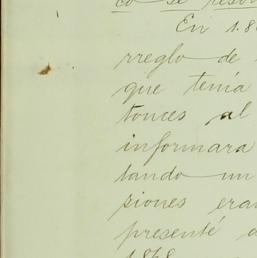 co se resol
En 18
rreglo de
que tenía
tonces al
informara
tando un
siones era
presenté a
1868